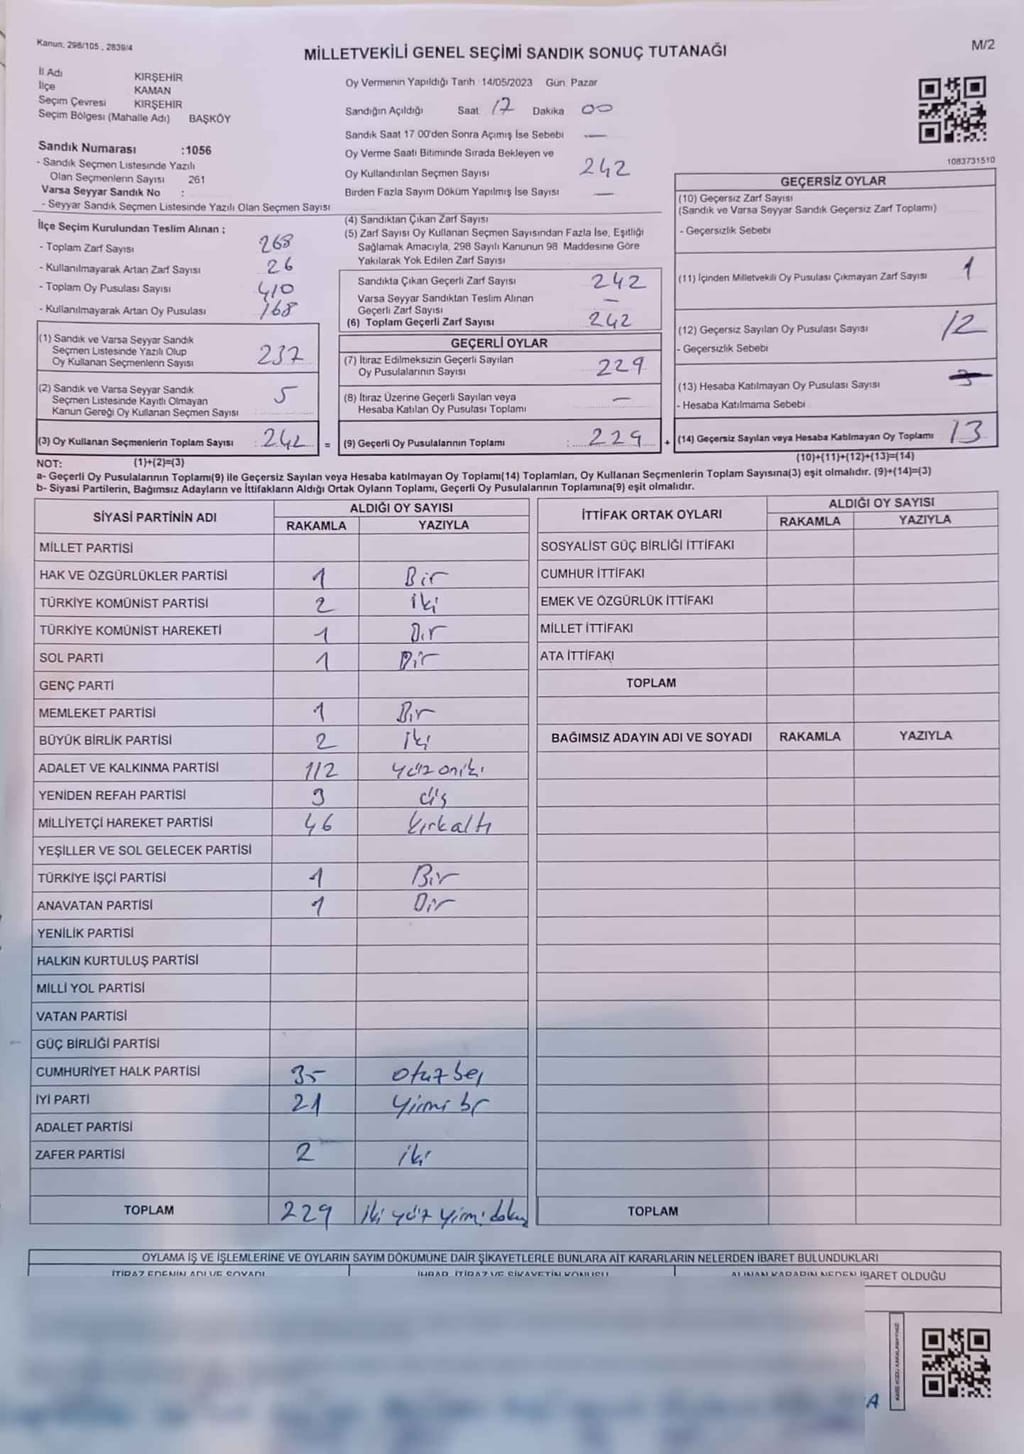 Kanun, 298/105 , 2839/4
MİLLETVEKİLİ GENEL SEÇİMİ SANDIK SONUÇ TUTANAĞI
M/2
İl Adı KIRŞEHİR
İlçe KAMAN
Seçim Çevresi KIRŞEHİR
Seçim Bölgesi (Mahalle Adı) BAŞKÖY
Sandık Numarası :1056
- Sandık Seçmen Listesinde Yazılı
Olan Seçmenlerin Sayısı 261
Varsa Seyyar Sandık No :
- Seyyar Sandık Seçmen Listesinde Yazılı Olan Seçmen Sayısı
Oy Vermenin Yapıldığı Tarih 14/05/2023 Gün Pazar
Sandığın Açıldığı Saat 17 Dakika 00
Sandık Saat 17 00'den Sonra Açımış İse Sebebi —
Oy Verme Saati Bitiminde Sırada Bekleyen ve
Oy Kullandırılan Seçmen Sayısı 242
Birden Fazla Sayım Döküm Yapılmış İse Sayısı —
1083731510
İlçe Seçim Kurulundan Teslim Alınan ;
- Toplam Zarf Sayısı 268
- Kullanılmayarak Artan Zarf Sayısı 26
- Toplam Oy Pusulası Sayısı 410
- Kullanılmayarak Artan Oy Pusulası 168
(1) Sandık ve Varsa Seyyar Sandık
Seçmen Listesinde Yazılı Olup
Oy Kullanan Seçmenlerin Sayısı 237
(2) Sandık ve Varsa Seyyar Sandık
Seçmen Listesinde Kayıtlı Olmayan
Kanun Gereği Oy Kullanan Seçmen Sayısı 5
(3) Oy Kullanan Seçmenlerin Toplam Sayısı : 242 =
(1)+(2)=(3)
(4) Sandıktan Çıkan Zarf Sayısı
(5) Zarf Sayısı Oy Kullanan Seçmen Sayısından Fazla İse, Eşitliği
Sağlamak Amacıyla, 298 Sayılı Kanunun 98 Maddesine Göre
Yakılarak Yok Edilen Zarf Sayısı
Sandıkta Çıkan Geçerli Zarf Sayısı 242
Varsa Seyyar Sandıktan Teslim Alınan
Geçerli Zarf Sayısı —
(6) Toplam Geçerli Zarf Sayısı 242
GEÇERLİ OYLAR
(7) İtiraz Edilmeksizin Geçerli Sayılan
Oy Pusulalarının Sayısı 229
(8) İtiraz Üzerine Geçerli Sayılan veya
Hesaba Katılan Oy Pusulası Toplamı —
(9) Geçerli Oy Pusulalarının Toplamı : 229 +
GEÇERSİZ OYLAR
(10) Geçersiz Zarf Sayısı
(Sandık ve Varsa Seyyar Sandık Geçersiz Zarf Toplamı)
- Geçersizlik Sebebi
(11) İçinden Milletvekili Oy Pusulası Çıkmayan Zarf Sayısı 1
(12) Geçersiz Sayılan Oy Pusulası Sayısı 12
- Geçersizlik Sebebi
(13) Hesaba Katılmayan Oy Pusulası Sayısı
- Hesaba Katılmama Sebebi
(14) Geçersiz Sayılan veya Hesaba Katılmayan Oy Toplamı 13
(10)+(11)+(12)+(13)=(14)
NOT:
a- Geçerli Oy Pusulalarının Toplamı(9) ile Geçersiz Sayılan veya Hesaba katılmayan Oy Toplamı(14) Toplamları, Oy Kullanan Seçmenlerin Toplam Sayısına(3) eşit olmalıdır. (9)+(14)=(3)
b- Siyasi Partilerin, Bağımsız Adayların ve İttifakların Aldığı Ortak Oyların Toplamı, Geçerli Oy Pusulalarının Toplamına(9) eşit olmalıdır.
SİYASİ PARTİNİN ADI ALDIĞI OY SAYISI
RAKAMLA YAZIYLA
MİLLET PARTİSİ
HAK VE ÖZGÜRLÜKLER PARTİSİ 1 Bir
TÜRKİYE KOMÜNİST PARTİSİ 2 iki
TÜRKİYE KOMÜNİST HAREKETİ 1 Bir
SOL PARTİ 1 Bir
GENÇ PARTİ
MEMLEKET PARTİSİ 1 Bir
BÜYÜK BİRLİK PARTİSİ 2 iki
ADALET VE KALKINMA PARTİSİ 112 yüz oniki
YENİDEN REFAH PARTİSİ 3 üç
MİLLİYETÇİ HAREKET PARTİSİ 46 kırkaltı
YEŞİLLER VE SOL GELECEK PARTİSİ
TÜRKİYE İŞÇİ PARTİSİ 1 Bir
ANAVATAN PARTİSİ 1 Bir
YENİLİK PARTİSİ
HALKIN KURTULUŞ PARTİSİ
MİLLİ YOL PARTİSİ
VATAN PARTİSİ
GÜÇ BİRLİĞİ PARTİSİ
CUMHURİYET HALK PARTİSİ 35 otuzbeş
İYİ PARTİ 21 yirmi br
ADALET PARTİSİ
ZAFER PARTİSİ 2 iki
TOPLAM 229 iki yüz yirmi doku
İTTİFAK ORTAK OYLARI ALDIĞI OY SAYISI
RAKAMLA YAZIYLA
SOSYALİST GÜÇ BİRLİĞİ İTTİFAKI
CUMHUR İTTİFAKI
EMEK VE ÖZGÜRLÜK İTTİFAKI
MİLLET İTTİFAKI
ATA İTTİFAKI
TOPLAM
BAĞIMSIZ ADAYIN ADI VE SOYADI RAKAMLA YAZIYLA
TOPLAM
OYLAMA İŞ VE İŞLEMLERİNE VE OYLARIN SAYIM DÖKÜMÜNE DAİR ŞİKAYETLERLE BUNLARA AİT KARARLARIN NELERDEN İBARET BULUNDUKLARI
İTİRAZ EDENİN ADI VE SOYADI İHBAR, İTİRAZ VE ŞİKAYETİN KONUSU ALINAN KARARIN NEDEN İBARET OLDUĞU
A